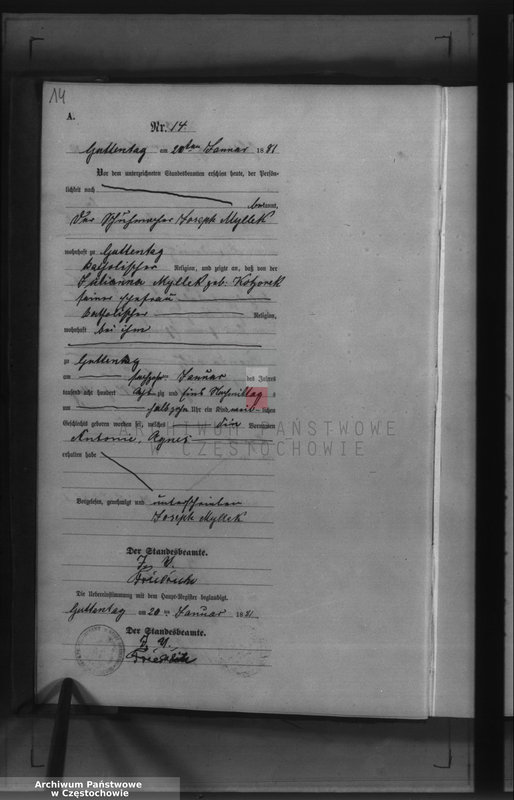 14
A.
Nr. 14.
Guttentag am 20ten Januar 1881
Vor dem unterzeichneten Standesbeamten erschien heute, der Persön-
lichkeit nach
bekannt,
Der Schuhmacher Joseph Myllek
wohnhaft zu Guttentag
katholischer Religion, und zeigte an, daß von der
Julianna Myllek geb: Kotzorek
seiner Ehefrau
katholischer Religion,
wohnhaft bei ihm
zu Guttentag
am Januar des Jahres
tausend acht hundert achtzig und eins Nachmittag s
um Uhr ein Kind weiblichen
Geschlechts geboren worden sei, welches die Vornamen
Antonie, Agnes
erhalten habe
Vorgelesen, genehmigt und unterschrieben
Joseph Myllek
Der Standesbeamte.
J. V.
Friedrich
Die Uebereinstimmung mit dem Haupt-Register beglaubigt.
Guttentag am 20 ten Januar 1881
Der Standesbeamte.
J. V.
Friedrich
ARCHIWUM PAŃSTWOWE
W CZĘSTOCHOWIE
Archiwum Państwowe
w Częstochowie